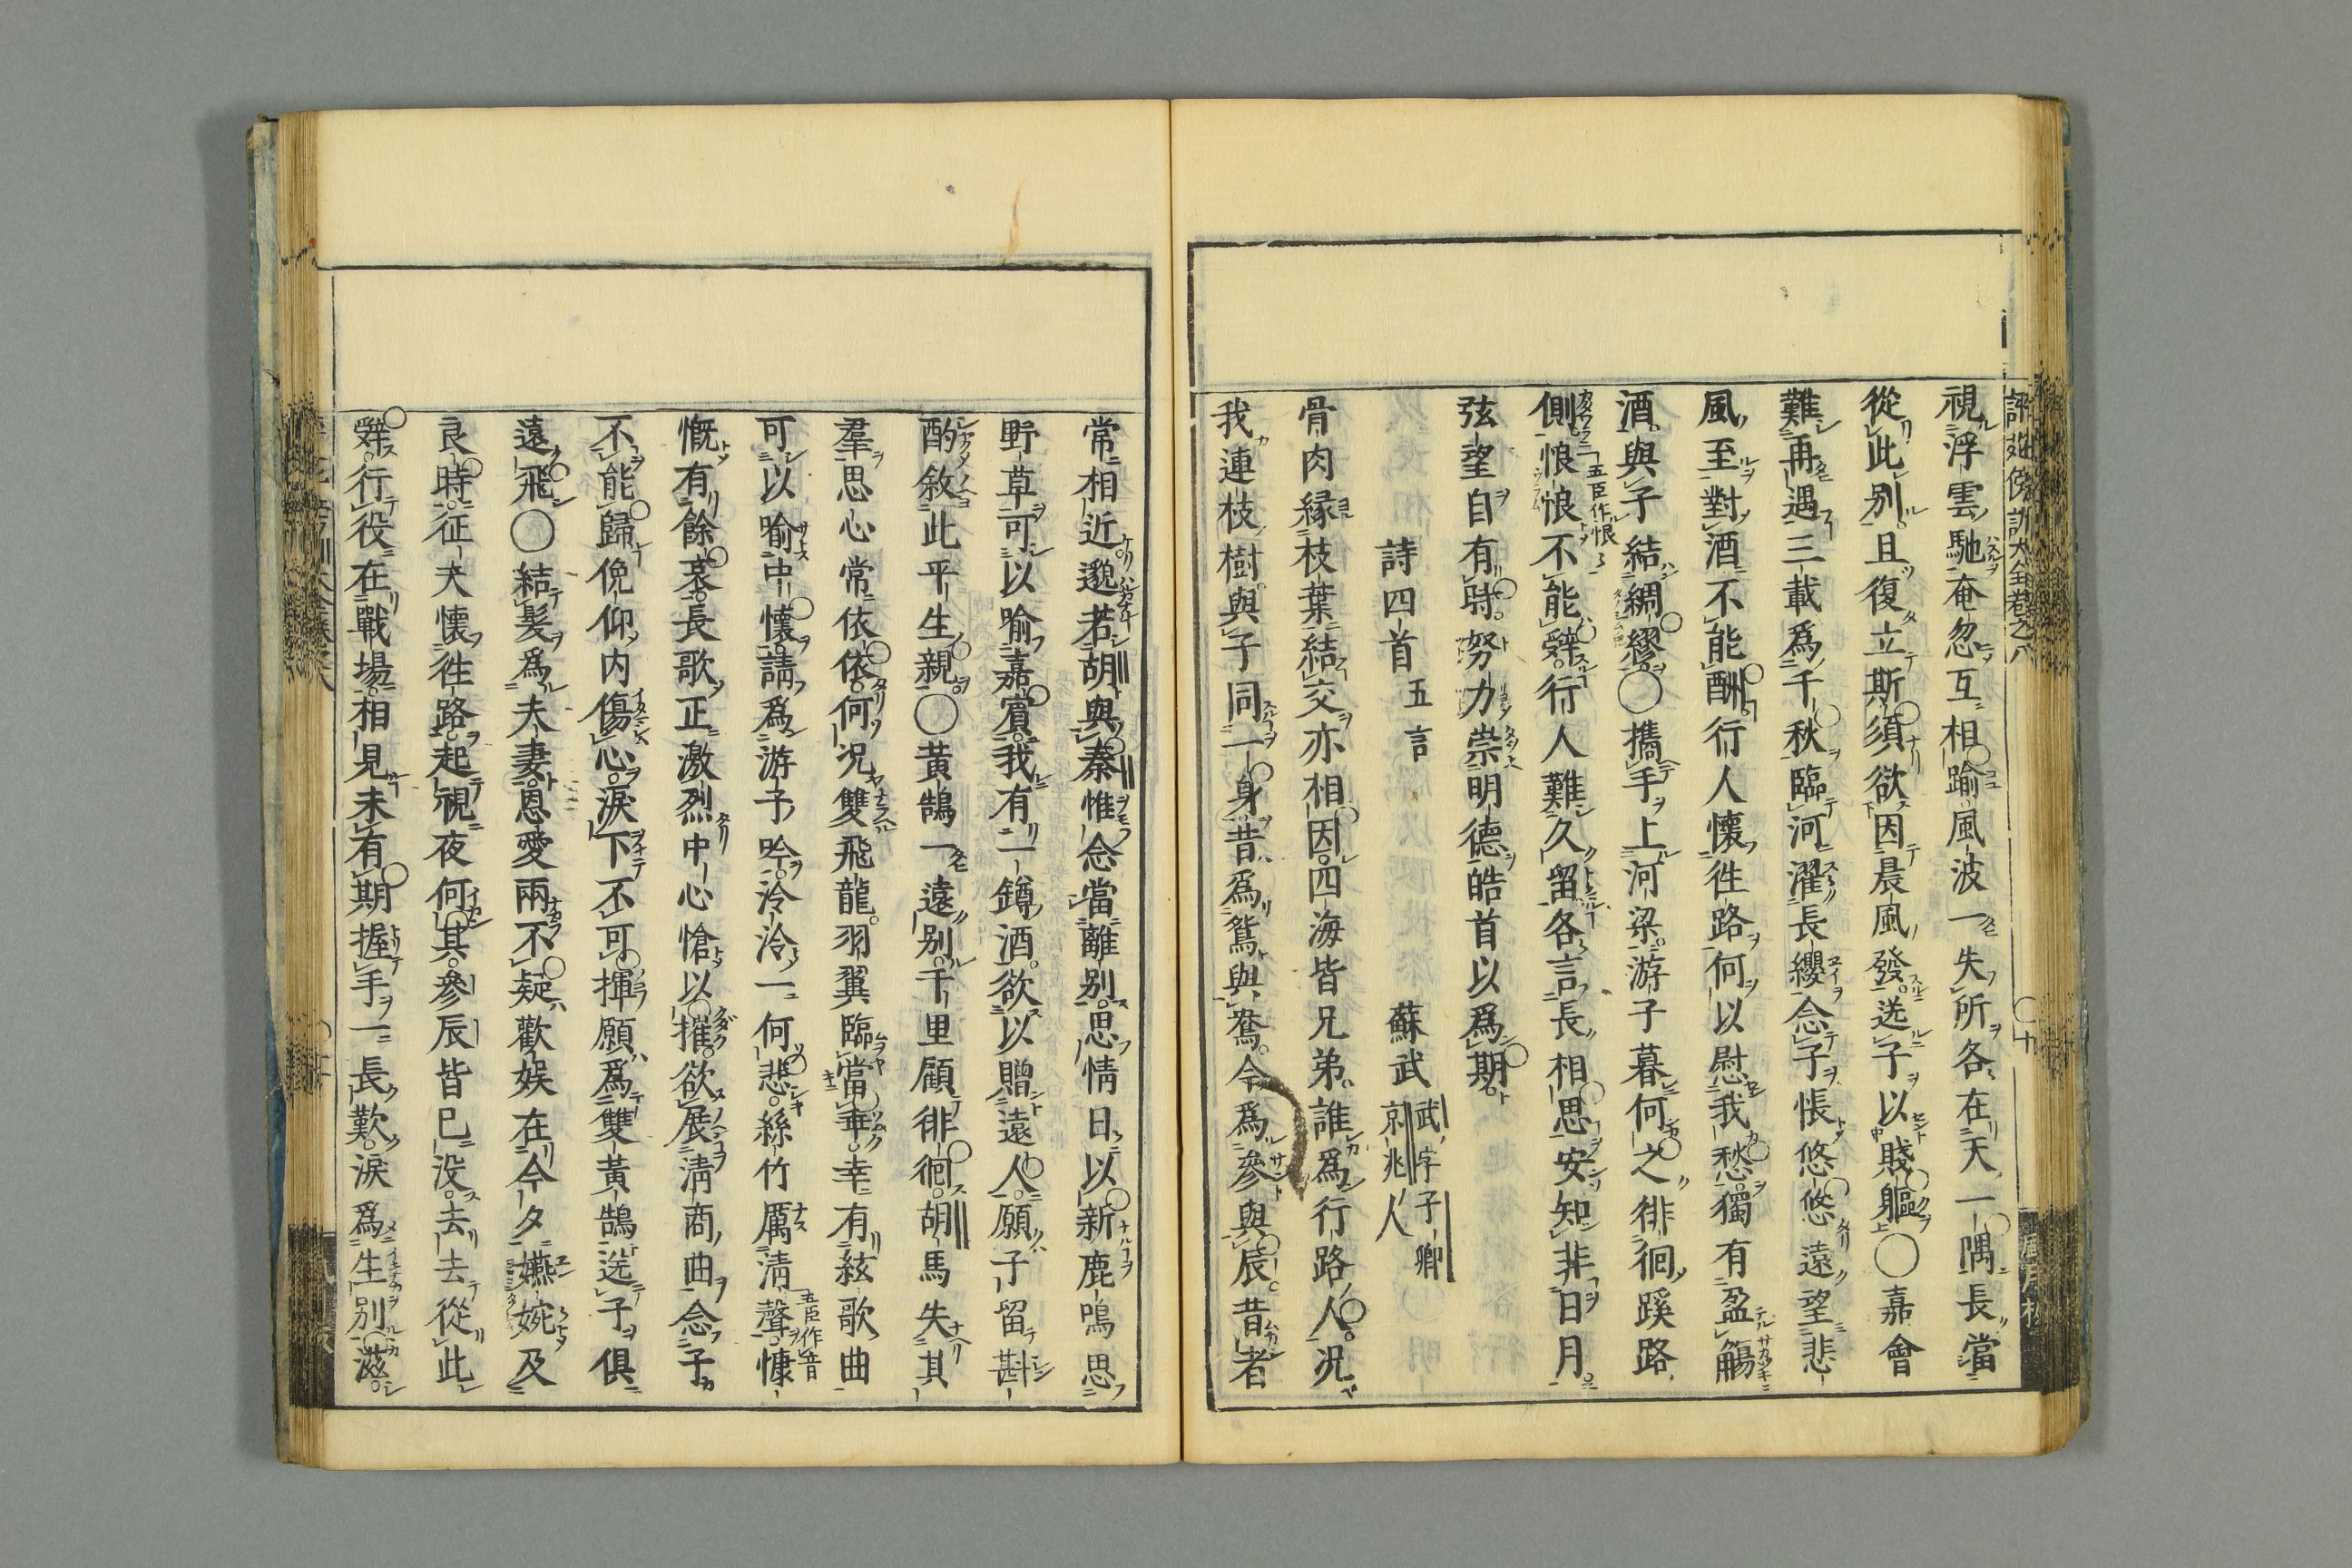 視浮雲馳奄忽互相踰風波一失所各在天一隅長當
從此別且復立斯須欲因晨風發送子以賤軀〇嘉會
難再遇三載爲千秋臨河濯長纓念子悵悠悠遠望悲
風至對酒不能酬行人懷徃路何以慰我愁獨有盈觴
酒與子結綢繆〇攜手上河梁游子暮何之徘徊蹊路
側悢悢不能辤行人難久留各言長相思安知非日月
五臣作恨
弦望自有時努力崇明德皓首以爲期
詩四首 五言 蘇武 武字子卿京兆人
骨肉緣枝葉結交亦相因四海皆兄弟誰爲行路人况
我連枝樹與子同一身昔爲鴛與鴦今爲參與辰昔者
常相近邈若胡與秦惟念當離別思情日以新鹿鳴思
野草可以喻嘉賓我有一罇酒欲以贈遠人願子留斟
酌敘此平生親〇黃鵠一遠別千里顧徘徊胡馬失其
羣思心常依依何况雙飛龍羽翼臨當乖幸有絃歌曲
可以喻中懷請爲游子吟泠泠一何悲絲竹厲清聲慷
五臣作音
慨有餘哀長歌正激烈中心愴以摧欲展清商曲念子
不能歸俛仰内傷心淚下不可揮願爲雙黃鵠送子俱
遠飛〇結髮爲夫妻恩愛兩不疑歡娛在今夕嬿婉及
良時征夫懷徃路起視夜何其參辰皆已没去去從此
辤行役在戰場相見未有期握手一長歎淚爲生別滋